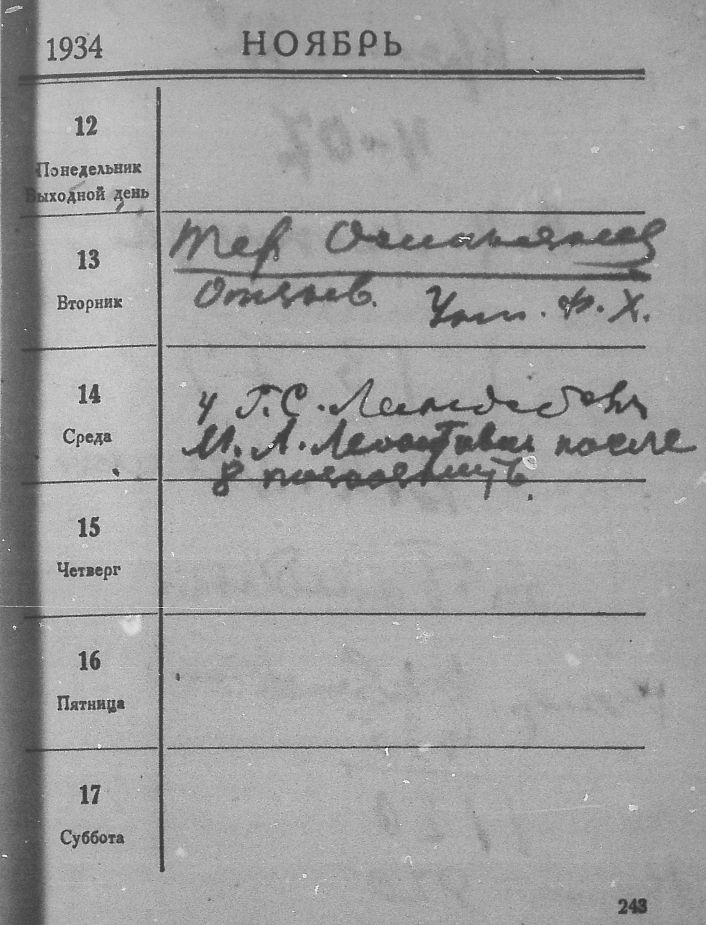 1934 НОЯБРЬ
12
Понедельник
Выходной день
13
Вторник
Тер
Отзыв. Ф. Х.
14
Среда
у Г. С. Ландсберг
М. А. Леонтович после
8
15
Четверг
16
Пятница
17
Суббота
243